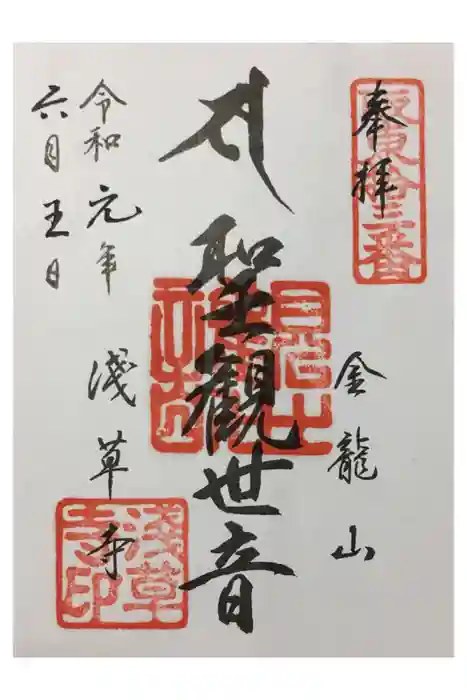 奉拝
坂東拾三番
金龍山
聖觀世音
令和元年
六月五日
淺草寺
淺草寺印